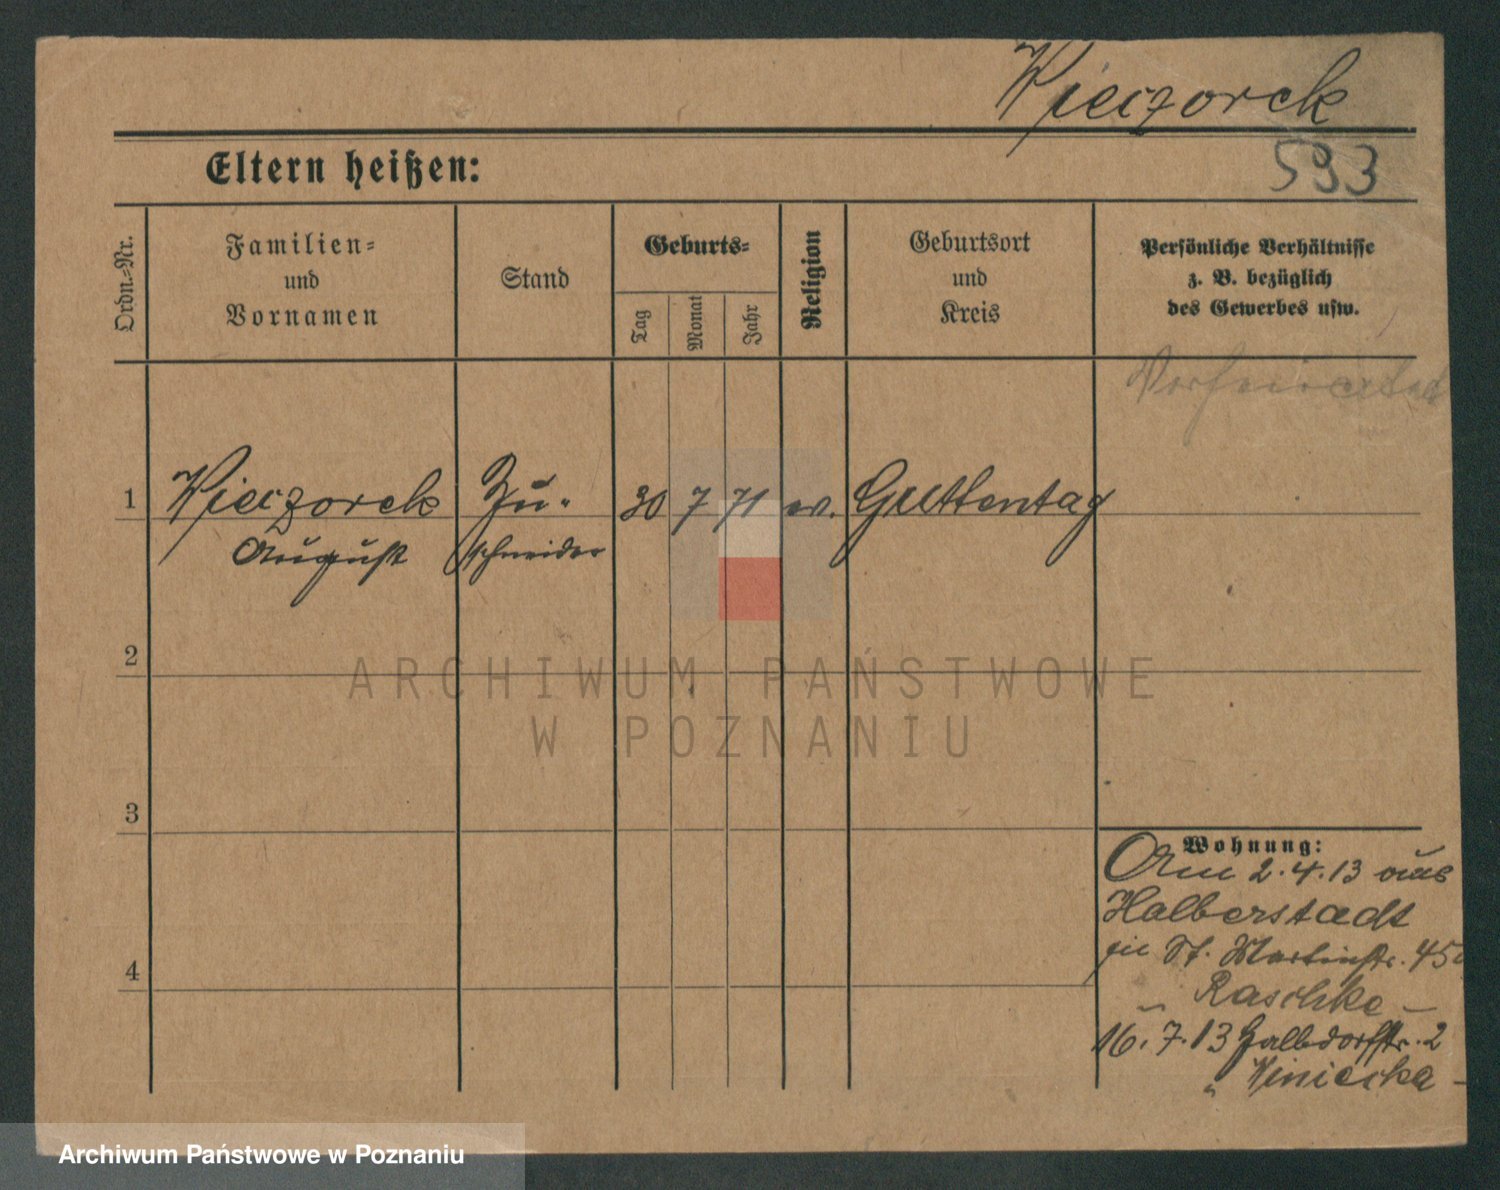 Wieczorek
593
Eltern heißen:
Ordn.-Nr.
Familien-
und
Vornamen
Stand
Geburts-
Tag
Monat
Jahr
Religion
Geburtsort
und
Kreis
Persönliche Verhältnisse
z. B. bezüglich
des Gewerbes usw.
Verheiratet
1 Wieczorek Zu- 30 7 71 ev. Guttentag
August schneider
2
3
4
Wohnung:
Am 2.4.13 aus
Halberstadt
St. Martinstr. 45
Raschke
16.7.13 Halbdorfstr. 2
" Winiecka
ARCHIWUM PAŃSTWOWE
W POZNANIU
Archiwum Państwowe w Poznaniu